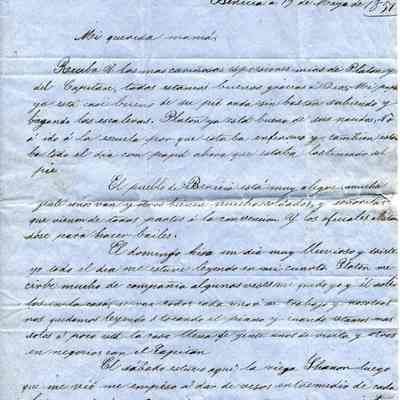 Benicia a 19 de Mayo de 1851
Mi querida mamá,
Reciba V. las mas cariñosas espresiones mias de Platon y
del Capitan, todos estamos buenos gracias a Dios, Mi papa
ya está casi bueno de su pie anda sin baston subiendo y
bagando las escaleras. Platon ya está bueno de sus
á ido á la escuela por que estaba enfermo y tambien estaba
todo el dia con papá ahora que estaba lastimado del
pie
El pueblo de Benicia está muy alegre, mucha
gente unos van y otros vienen muchos soldados, y señoritas
que vienen de todas partes á la convencion. Y los oficiales
dose para hacer bailes.
El domingo hiso un dia muy lluvioso y triste
yo todo el dia me estuve leyendo en mi cuarto Platon me
cirbe mucho de compañia algunas veses
en la casa, se van todos cada uno á su trabajo y nosotros
nos quedamos leyendo ó tocando el piano y cuando estamos mas
solos á poco está la casa llena de gente unos de visita y otros
en negocios con el Capitan
El sabado estuvo aqui la vieja Shanon luego
que me vió me empeso á dar de vesos en los medio de cada